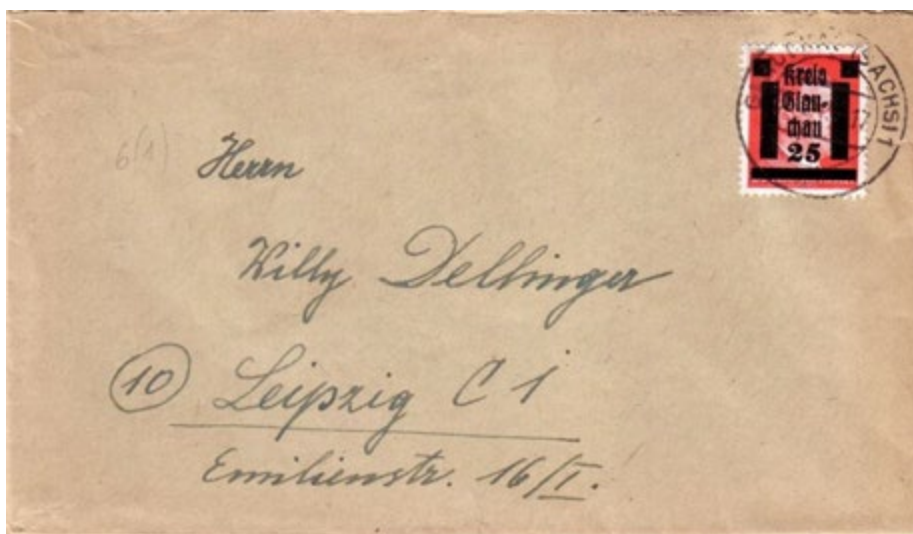 Kreis
Glau-
chau
25
(SACHS) 1
6(1)
Herrn
Willy Dellinger
10 Leipzig C 1
Emilienstr. 16/I.